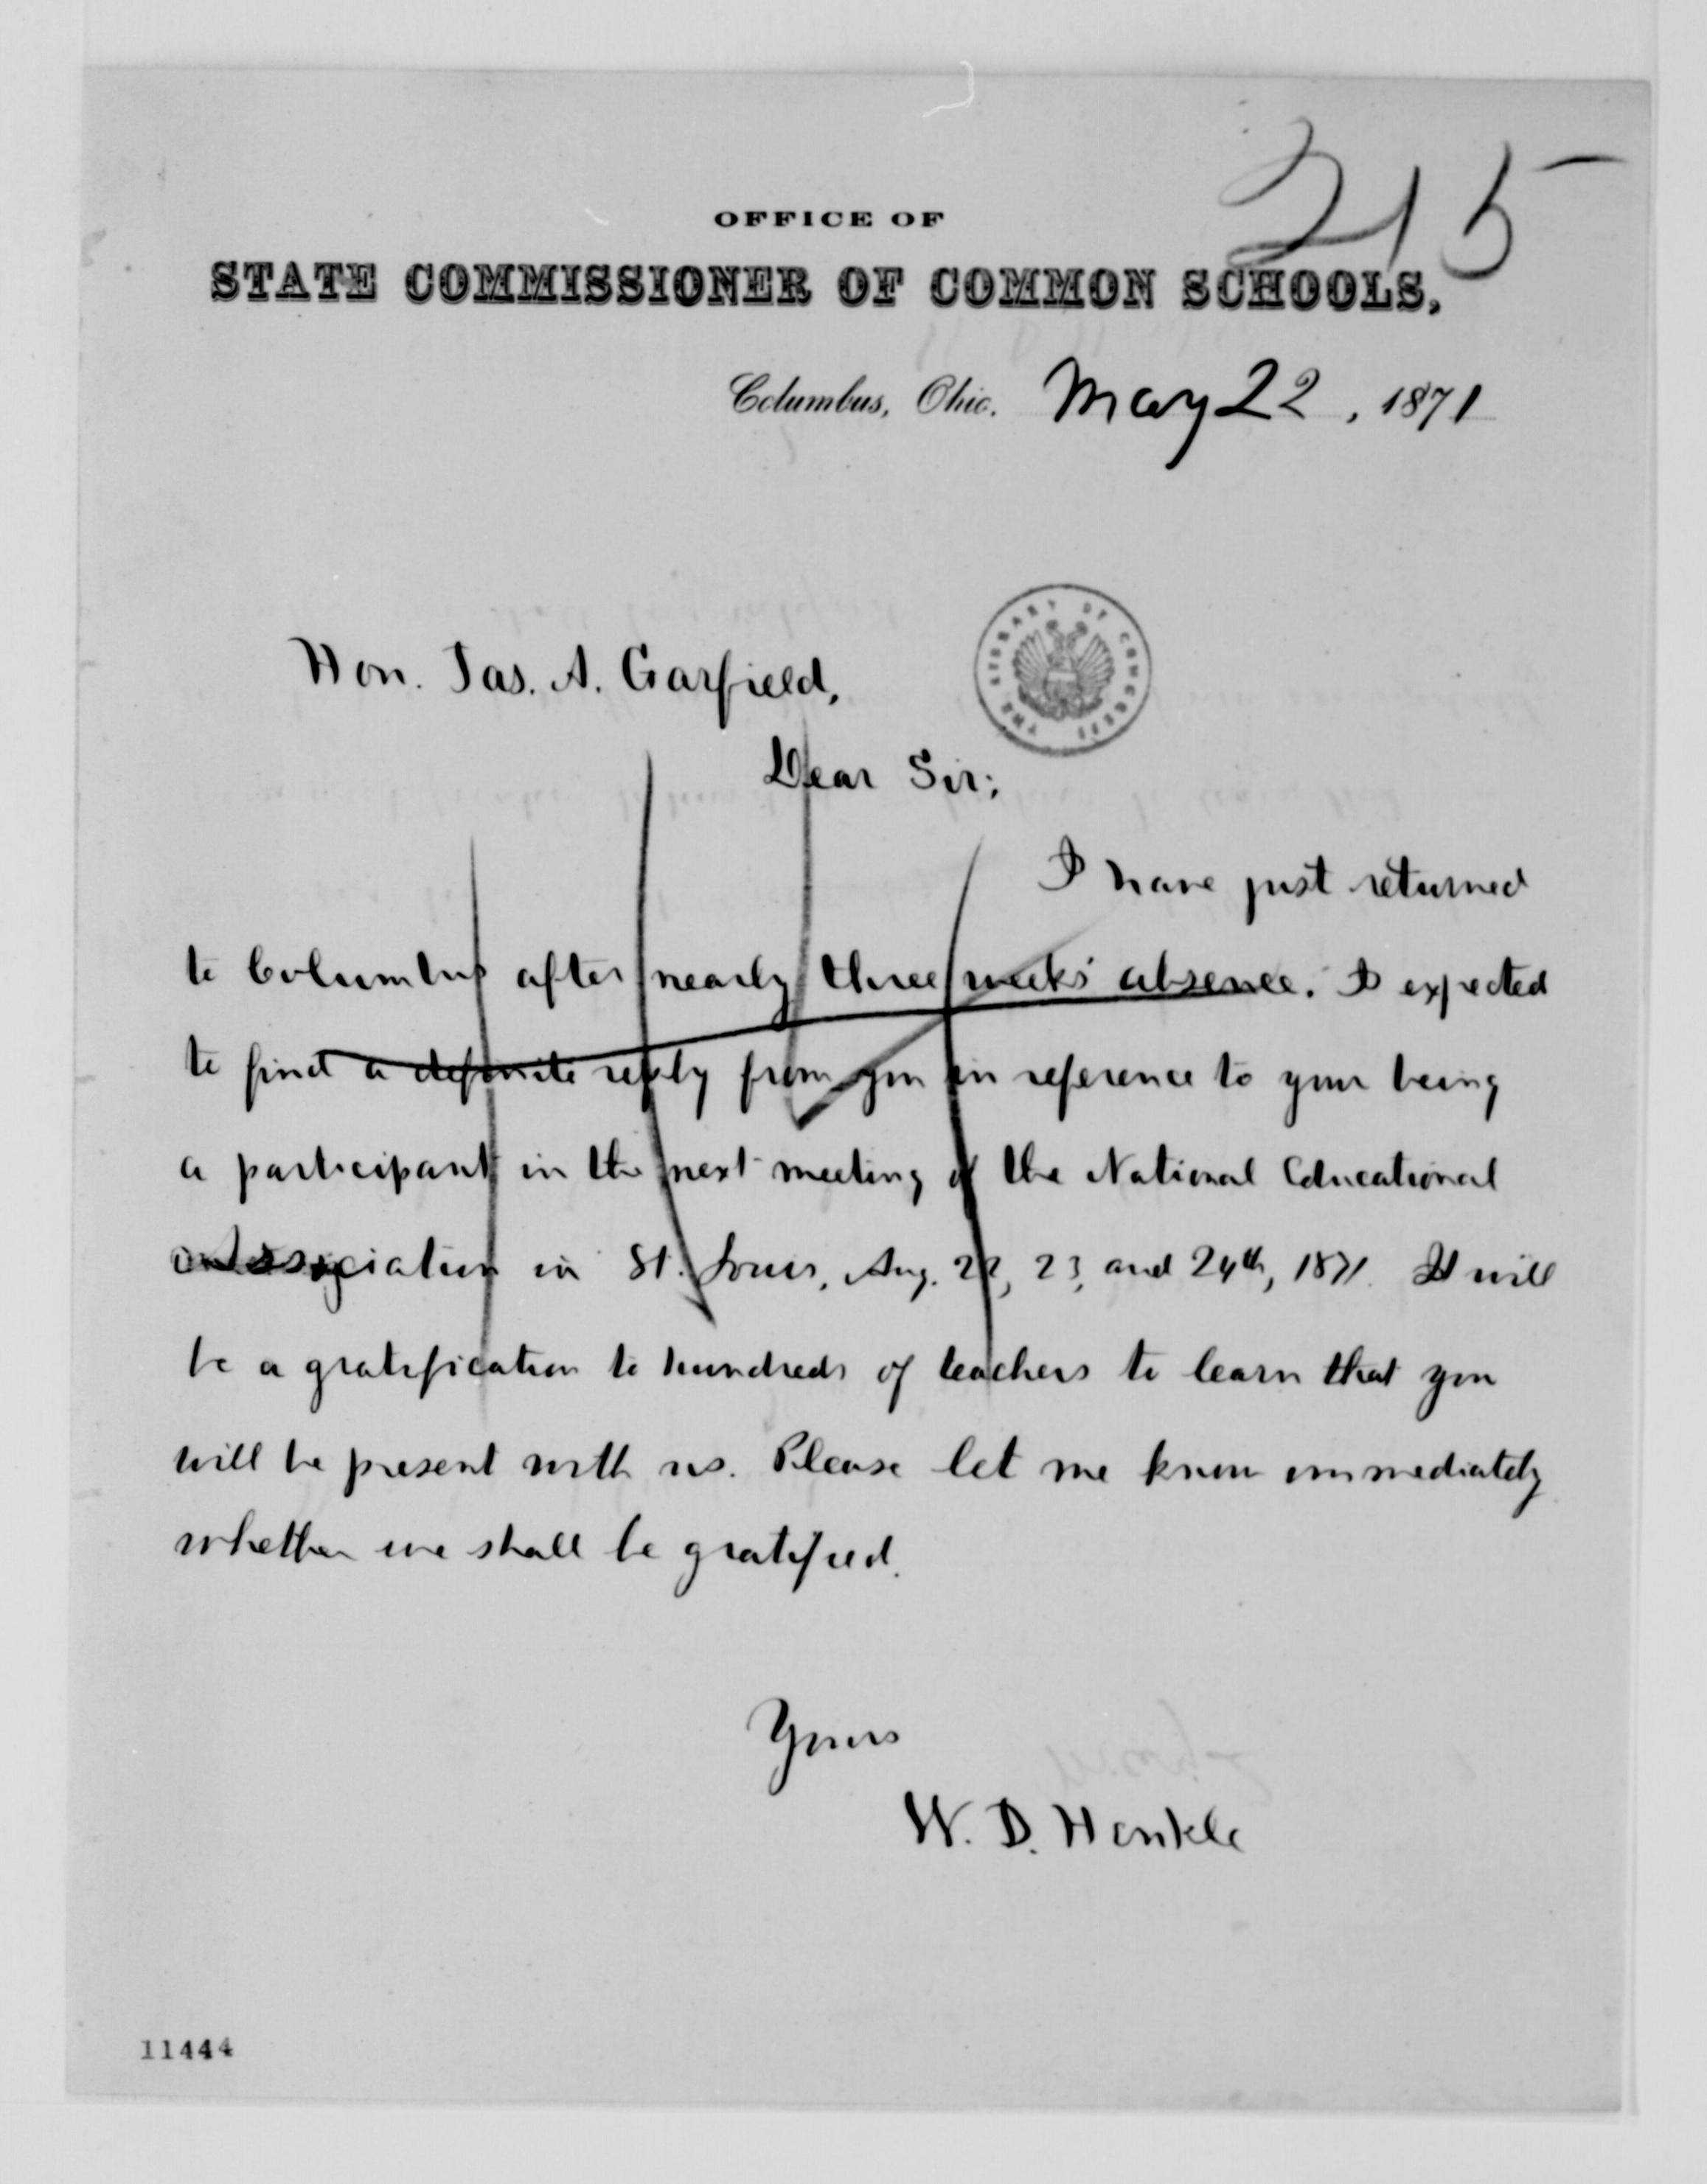 215
OFFICE OF
STATE COMMISSIONER OF COMMON SCHOOLS,
Columbus, Ohio. May 22, 1871
THE LIBRARY OF CONGRESS
Hon. Jas. A. Garfield,
Dear Sir:
I have just returned
to Columbus after nearly three weeks' absence. I expected
to find a definite reply from you in reference to your being
a participant in the next meeting of the National Educational
Association in St. Louis, Aug. 22, 23, and 24th, 1871. It will
be a gratification to hundreds of teachers to learn that you
will be present with us. Please let me know immediately
whether we shall be gratified.
Yours
W. D. Henkle
11444